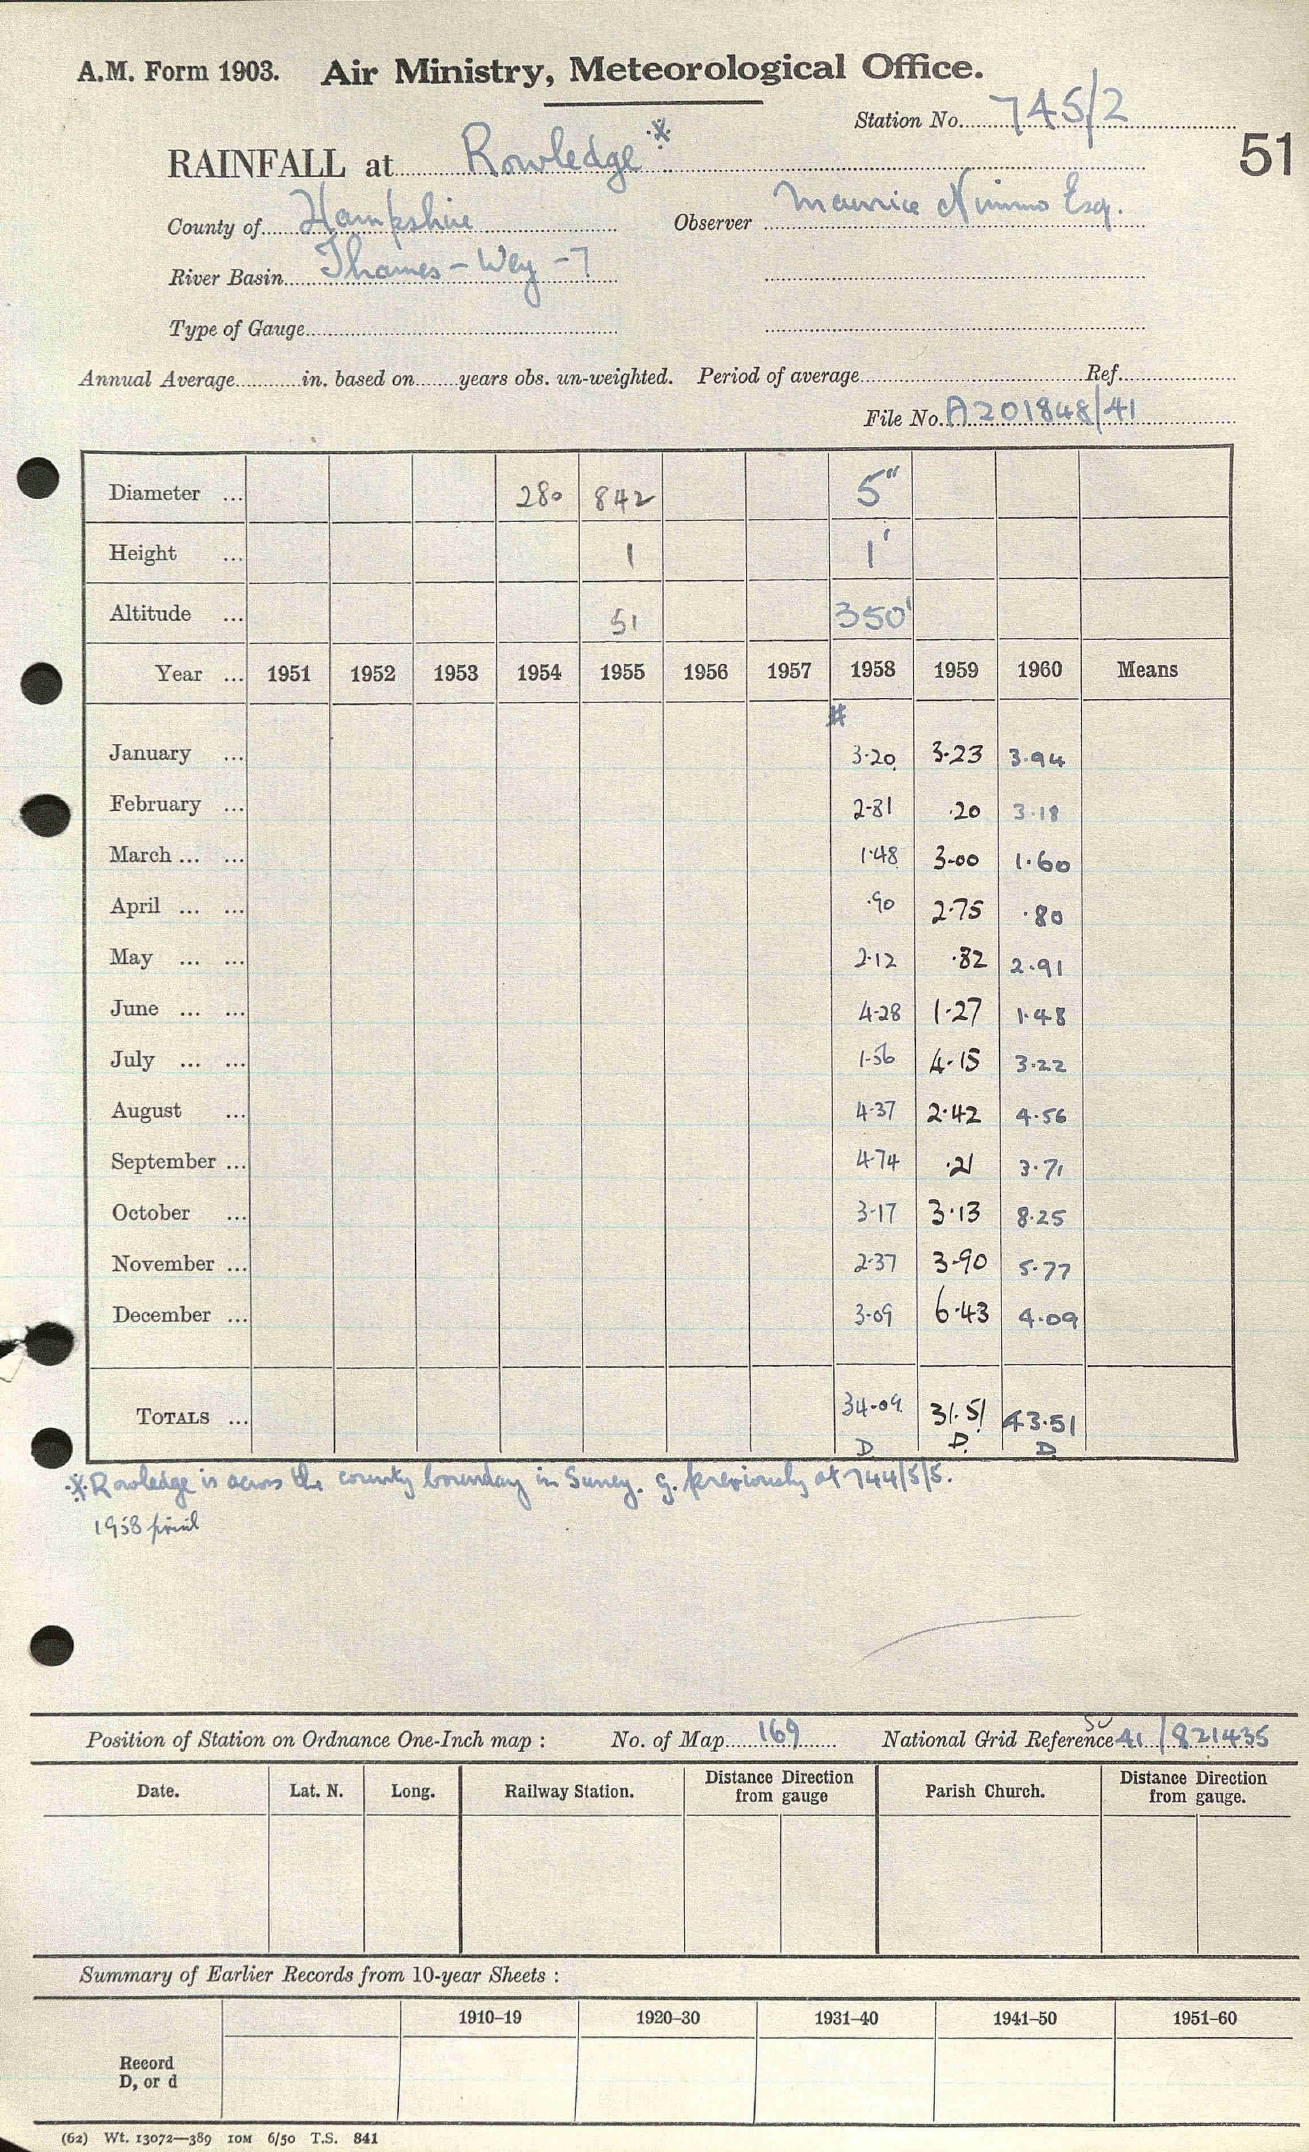 A.M. Form 1903. Air Ministry, Meteorological Office.
Station No. 745/2
51
RAINFALL at Rowledge *
County of Hampshire Observer Maurice Nimmo Esq.
River Basin Thames - Wey - 7
Type of Gauge
Annual Average in. based on years obs. un-weighted. Period of average Ref.
File No. A201848/41
Diameter ... 280 842 5"
Height ... 1 1'
Altitude ... 51 350'
Year ... 1951 1952 1953 1954 1955 1956 1957 1958 1959 1960 Means
#
January ... 3·20 3·23 3·94
February ... 2·81 ·20 3·18
March ... ... 1·48 3·00 1·60
April ... ... ·90 2·75 ·80
May ... ... 2·12 ·82 2·91
June ... ... 4·28 1·27 1·48
July ... ... 1·56 4·15 3·22
August ... 4·37 2·42 4·56
September ... 4·74 ·21 3·71
October ... 3·17 3·13 8·25
November ... 2·37 3·90 5·77
December ... 3·09 6·43 4·09
TOTALS ... 34·09 31·51 43·51
D D D
* Rowledge is across the county boundary in Surrey. G. previously at 744/5/5.
1958
Position of Station on Ordnance One-Inch map : No. of Map 169 National Grid Reference SU 41/821435
Date. Lat. N. Long. Railway Station. Distance Direction from gauge Parish Church. Distance Direction from gauge.
Summary of Earlier Records from 10-year Sheets :
1910–19 1920–30 1931–40 1941–50 1951–60
Record
D, or d
(62) Wt. 13072—389 10M 6/50 T.S. 841